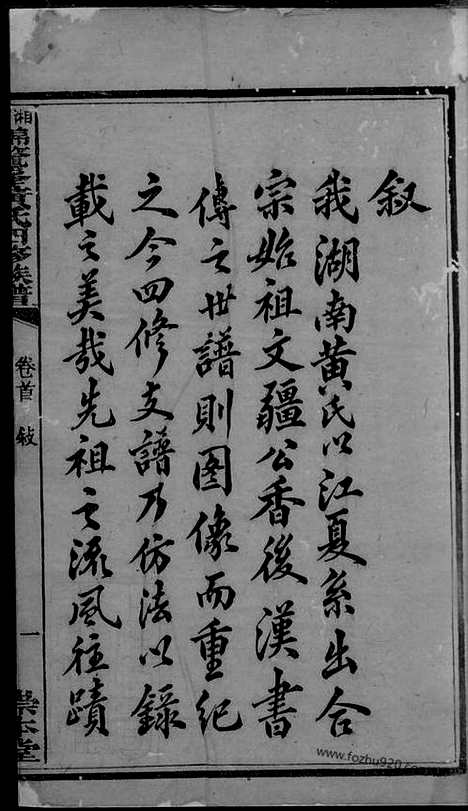 叙
我湖南黄氏以江夏系出合
宗始祖文疆公香後漢書
傳之世譜則图像而重纪
之今四修支譜乃仿法以錄
載之美哉先祖之流風往蹟
湘
黃氏四修族譜
卷首
敍
一
崇本堂
www.fozhu920.com